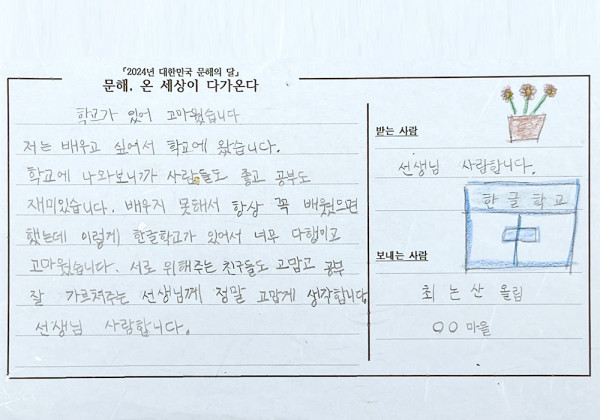 「2024년 대한민국 문해의 달」
문해. 온 세상이 다가온다
학교가 있어 고마웠습니다
저는 배우고 싶어서 학교에 왔습니다.
학교에 나와보니까 사람들도 좋고 공부도
재미있습니다. 배우지 못해서 항상 꼭 배웠으면
했는데 이렇게 한글학교가 있어서 너무 다행이고
고마웠습니다. 서로 위해주는 친구들도 고맙고 공부
잘 가르쳐주는 선생님께 정말 고맙게 생각합니다
선생님 사람합니다.
받는 사람
선생님 사람합니다.
한글학교
보내는 사람
최논산 올림
○○ 마을